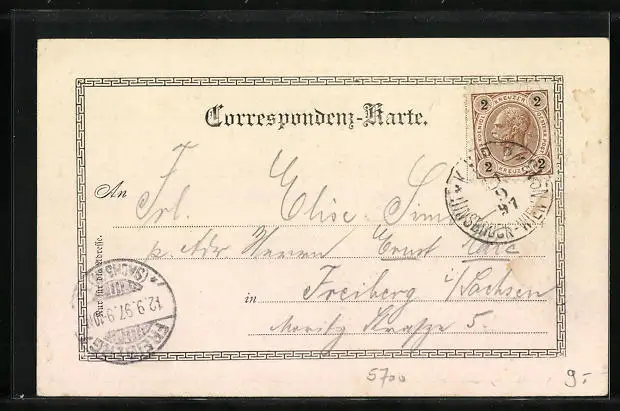 Correspondenz-Karte.
2 KREUZER 2
2 KREUZER 2
INNSBRUCK-WIEN
9
97
An Frl. Elise
p. Adr Herrn Ernst
Nur für die Adresse.
in Freiberg i/Sachsen
Moritz Straße 5.
FREIBERG
(SACHSEN)
12.9.97.9-10
5700
9.-